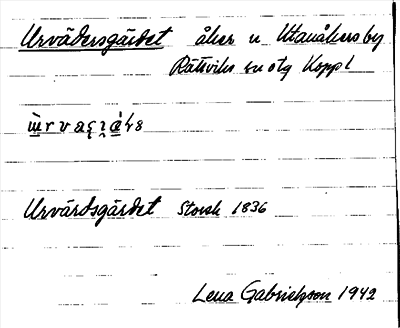 Urvädersgärdet åker n Utanåkers by
Rättviks sn o tg Kopp l
Urvärdsgärdet Storsk 1836
Lena Gabrielsson 1942